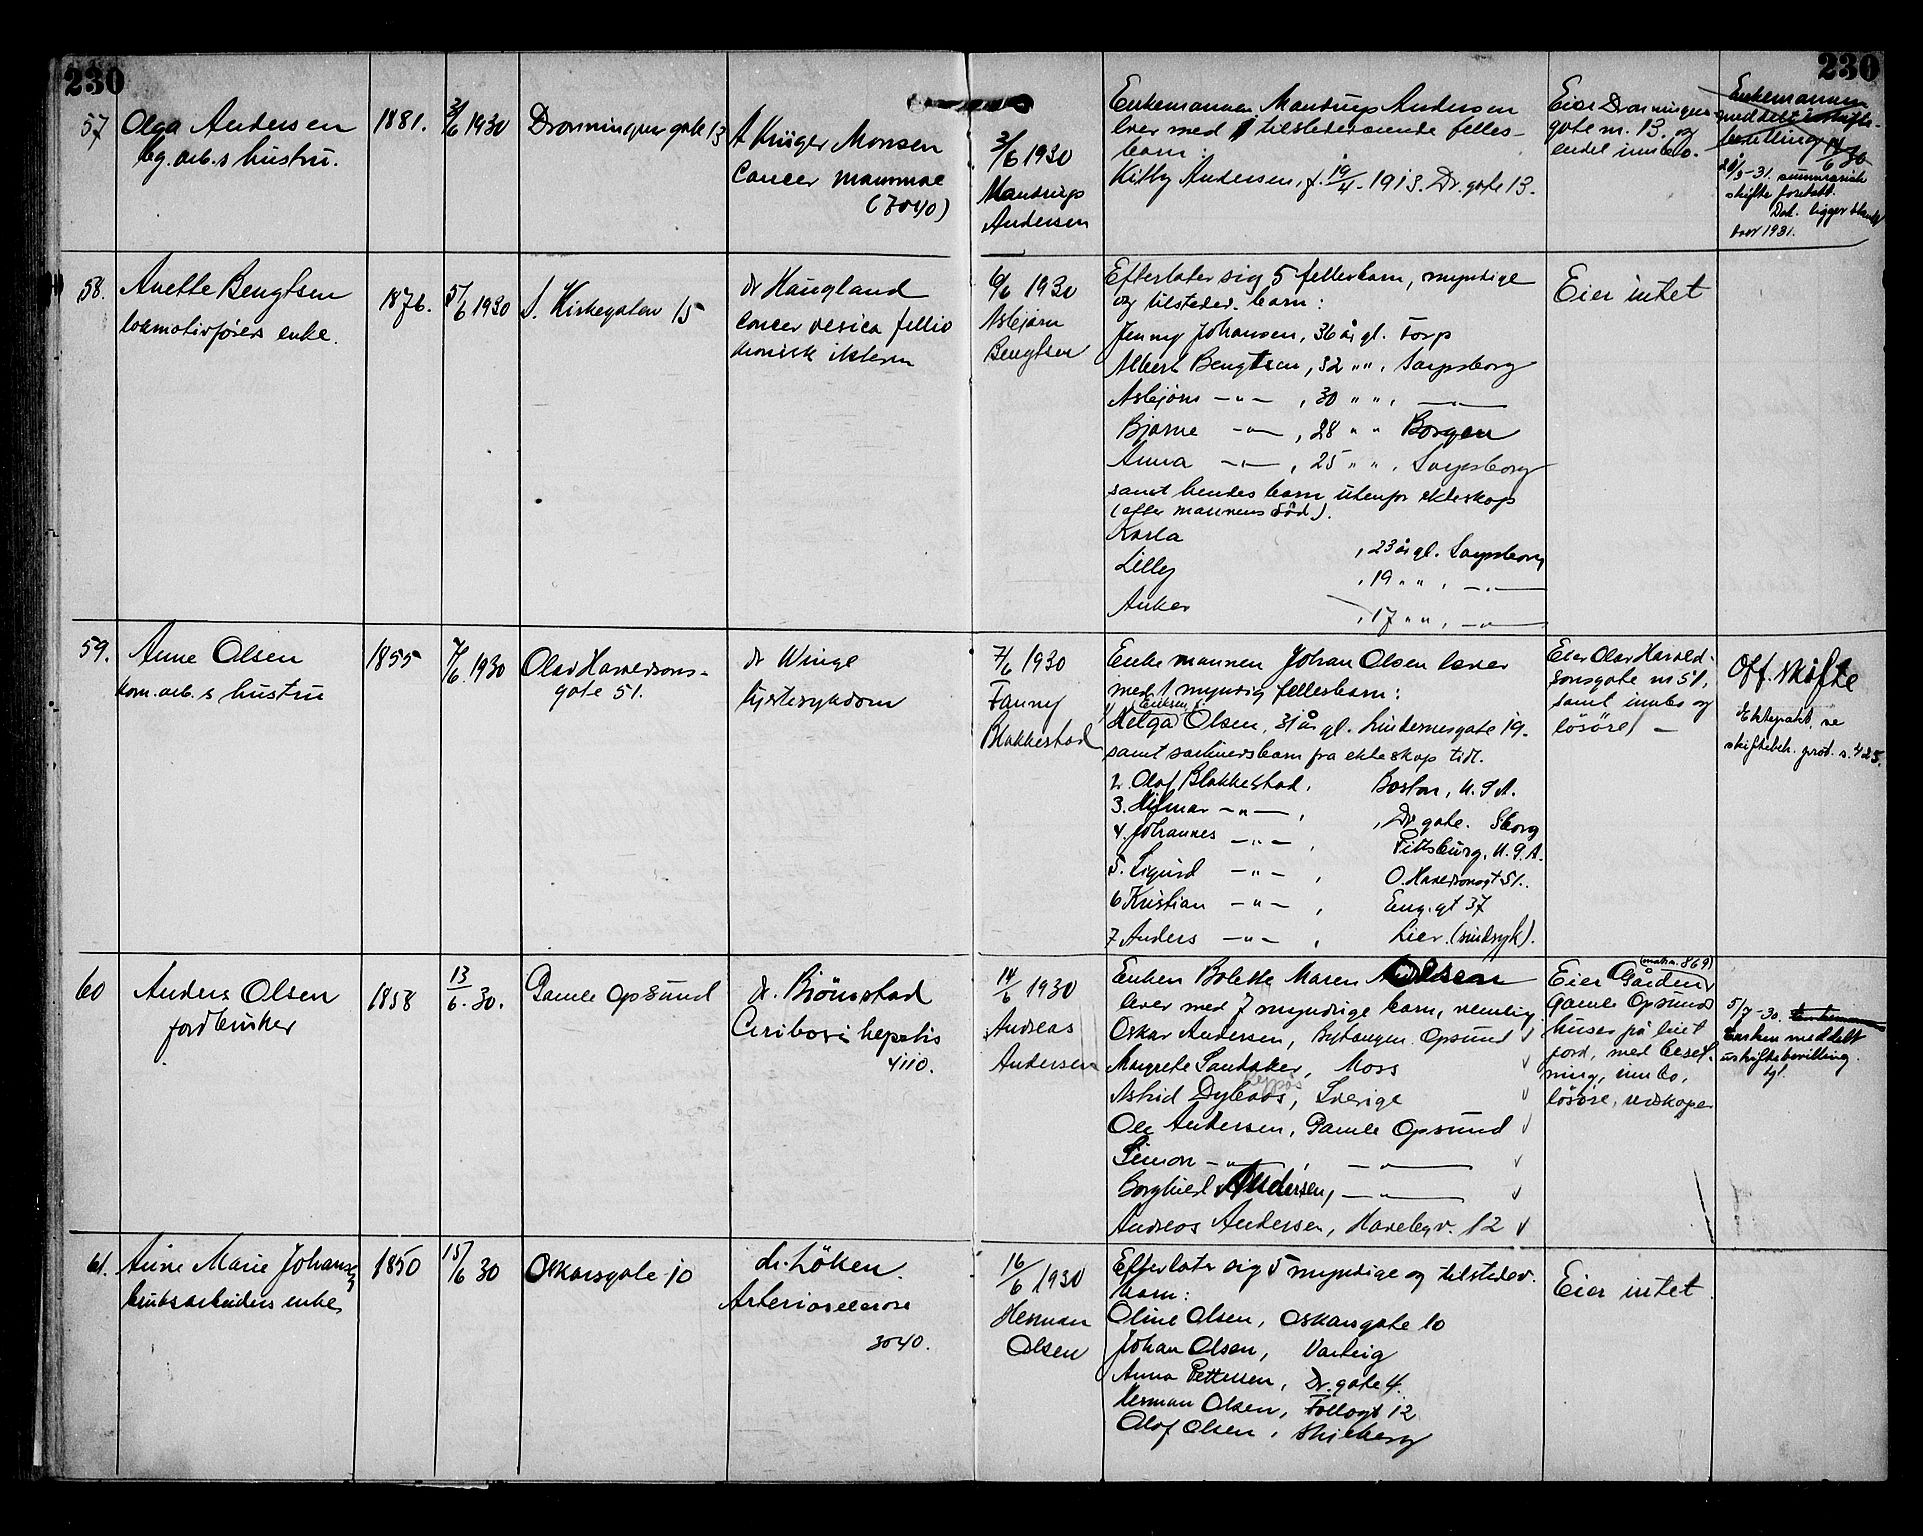 230
230
57
Olga Andersen
bg. arb.s hustru.
1881.
2/6 1930
Dronningensgate 13
Krüger Monsen
Cancer mammae
(7040)
3/6 1930
Mandrup
Andersen
Enkemannen Mandrup Andersen
lever med 1 tilstedeværende felles-
barn:
Kitty Andersen, f. 19/4. 1913. Dr. gate 13.
Eier Dronningens
gate nr. 13. og
endel innbo.
Enkemannen
meddelt uskifte-
bevilling 14/6 30
/5-31. summarisk
skifte foretatt.
Dok. ligger
1931.
58.
Anette Bengtsen
lokomotivførers enke.
1876.
5/6 1930
S. Kirkegaten 15
dr Haugland
Cancer vesica fellia
kronisk ikterus
6/6 1930
Asbjørn
Bengtsen
Efterlater sig 5 fellesbarn, myndige
og tilstedev. barn:
Jenny Johansen, 36 år gl. Torp
Albert Bengtsen, 32 " ", Sarpsborg
Asbjørn —"—, 30 " ", —"—
Bjarne —"—, 28 " " Borgen
Anna —"—, 25 " ", Sarpsborg
samt hendes barn utenfor ekteskap
(efter mannens död).
Karla , 23 år gl. Sarpsborg
Lilly , 19 " ", —"—
Anker , 17 " ", —"—
Eier intet
59.
Anne Olsen
kom. arb.s hustru
1855
7/6. 1930
Olav Haraldsons-
gate 51.
dr Winge
hjertesykdom
7/6 1930
Fanny
Blakkestad
Enkemannen Johan Olsen lever
med 1 myndig fellesbarn:
1/ Helga Olsen, 31 år gl. Lindemesgate 19.
samt særkullsbarn fra ekteskap tidl.
2. Olaf Blakkestad, Boston, U.S.A.
3. Hilmar —"—, Dr gate. Sborg
4. Johannes —"—, Pittsburg, U.S.A.
5. Sigurd —"—, O. Haraldsonsgt 51.
6 Kristian —"—, Eng.gt 37
7 Anders —"—, Lier. (sindsyk).
Eier Olav Harald-
sonsgate nr 51,
samt innbo og
lösöre. —
Off. skifte
Ektepakt, se
skiftebeh. prot. s. 425.
60
Anders Olsen
jordbruker
1858
13/6. 30.
Gamle Opsund
dr. Björnstad
Cirihosis hepatis
4110.
14/6 1930
Andreas
Andersen
Enken Bolette Maren Olsen
lever med 7 myndige barn, nemlig
Oskar Andersen, Opsund √
Margrete Sandaker, Moss √
Astrid , Sverige √
Ole Andersen, Gamle Opsund √
Simon —"—, —"— √
Borghild Andersen, —"— √
Andreas Andersen, Havebyv. 12 √
(matr. 869)
Eier Gården
Gamle Opsund
huser på leiet
jord, med beset-
ning, innbo,
lösöre, redskaper
5/7-30.
Enken meddelt
uskiftebevilling.
61.
Anne Marie Johansen
bruksarbeiders enke
1850
15/6 30
Oskarsgate 10
dr. Löken.
Arteriosclerose
3040.
16/6 1930
Herman
Olsen
Efterlater sig 5 myndige og tilstedev.
barn:
Oline Olsen, Oskarsgate 10
Johan Olsen, Varteig
Anna Pettersen, Dr. gate 4.
Herman Olsen, Follogt 12
Olaf Olsen, Skjeberg
Eier intet.